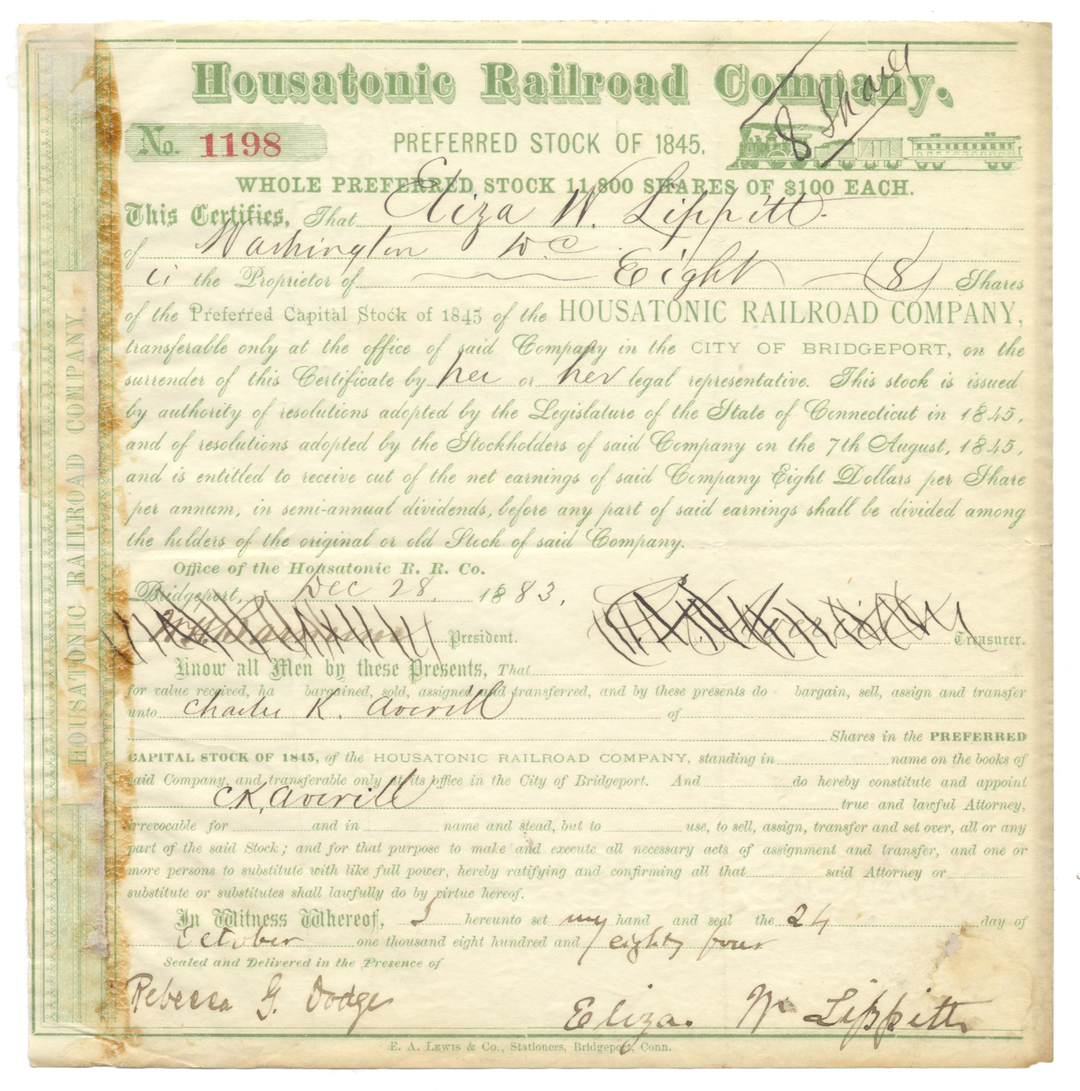 Housatonic Railroad Company.
8 Shares
No. 1198
PREFERRED STOCK OF 1845.
WHOLE PREFERRED STOCK 11,800 SHARES OF $100 EACH.
This Certifies, That Eliza W. Lippitt
of Washington D.C.
is the Proprietor of Eight (8) Shares
of the Preferred Capital Stock of 1845 of the HOUSATONIC RAILROAD COMPANY,
transferable only at the office of said Company in the CITY OF BRIDGEPORT, on the
surrender of this Certificate by her or her legal representative. This stock is issued
by authority of resolutions adopted by the Legislature of the State of Connecticut in 1845,
and of resolutions adopted by the Stockholders of said Company on the 7th August, 1845,
and is entitled to receive out of the net earnings of said Company Eight Dollars per Share
per annum, in semi-annual dividends, before any part of said earnings shall be divided among
the holders of the original or old Stock of said Company.
Office of the Housatonic R. R. Co.
Bridgeport, Dec 28, 1883.
President. Treasurer.
Know all Men by these Presents, That
for value received, ha bargained, sold, assigned and transferred, and by these presents do bargain, sell, assign and transfer
unto Charles K. Averill of
Shares in the PREFERRED
CAPITAL STOCK OF 1845, of the HOUSATONIC RAILROAD COMPANY, standing in name on the books of
said Company, and transferable only at its office in the City of Bridgeport. And do hereby constitute and appoint
C.K. Averill true and lawful Attorney,
irrevocable for and in name and stead, but to use, to sell, assign, transfer and set over, all or any
part of the said Stock; and for that purpose to make and execute all necessary acts of assignment and transfer, and one or
more persons to substitute with like full power, hereby ratifying and confirming all that said Attorney or
substitute or substitutes shall lawfully do by virtue hereof.
In Witness Whereof, I hereunto set my hand and seal the 24 day of
October one thousand eight hundred and eighty four
Sealed and Delivered in the Presence of
Rebecca G. Dodge
Eliza. W. Lippitt
E. A. LEWIS & Co., Stationers, Bridgeport, Conn.
HOUSATONIC RAILROAD COMPANY.